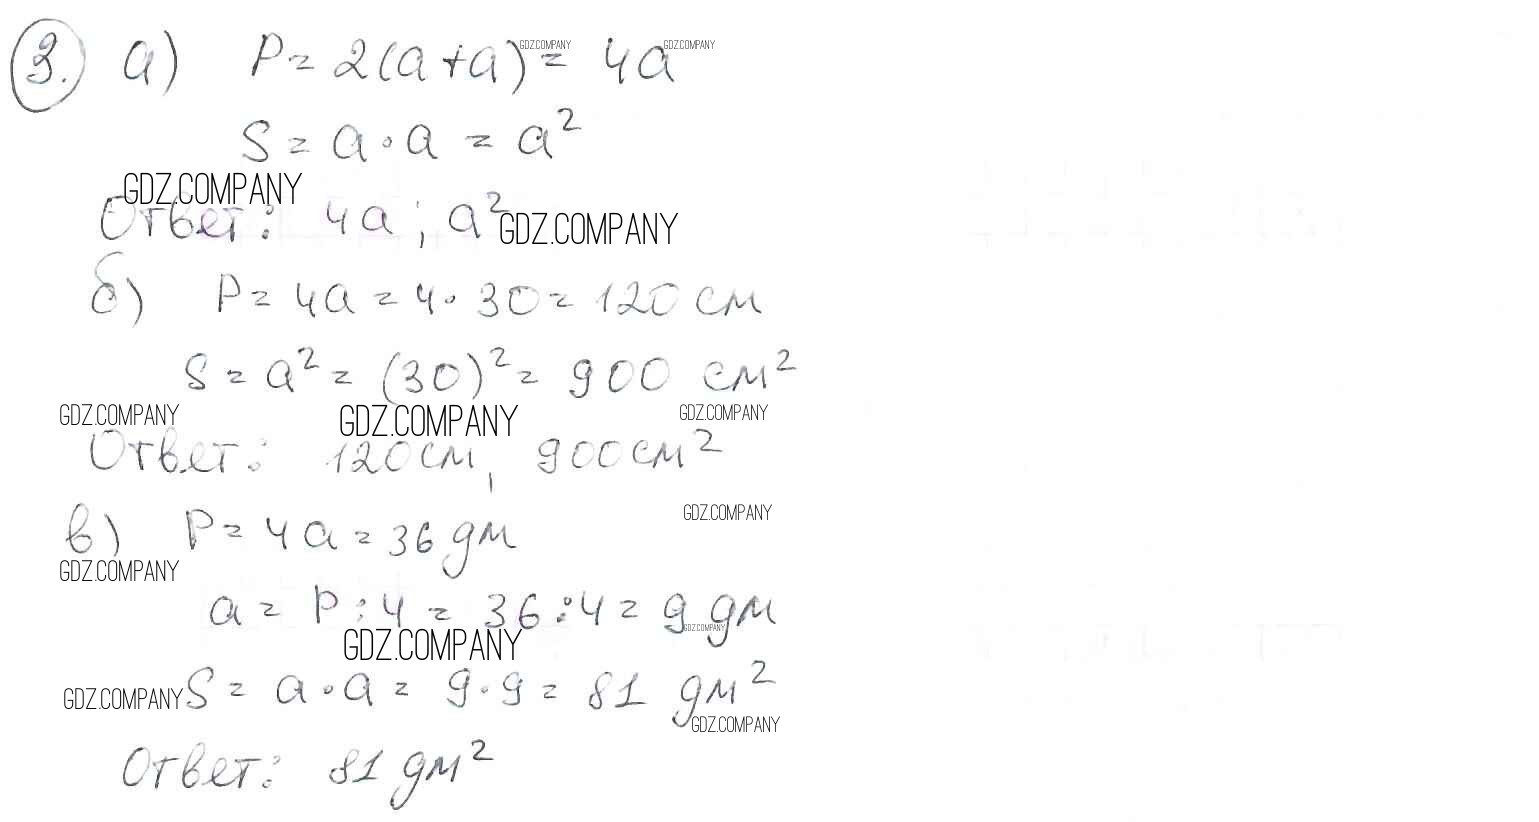 3. а) P = 2(a+a) = 4a
GDZ.COMPANY GDZ.COMPANY
S = a·a = a²
GDZ.COMPANY
Ответ: 4a; a²
GDZ.COMPANY
б) P = 4a = 4·30 = 120 см
S = a² = (30)² = 900 см²
GDZ.COMPANY GDZ.COMPANY GDZ.COMPANY
Ответ: 120см, 900см²
GDZ.COMPANY
в) P = 4a = 36 дм
GDZ.COMPANY
a = P:4 = 36:4 = 9 дм
GDZ.COMPANY
GDZ.COMPANY
GDZ.COMPANY S = a·a = 9·9 = 81 дм²
GDZ.COMPANY
Ответ: 81 дм²